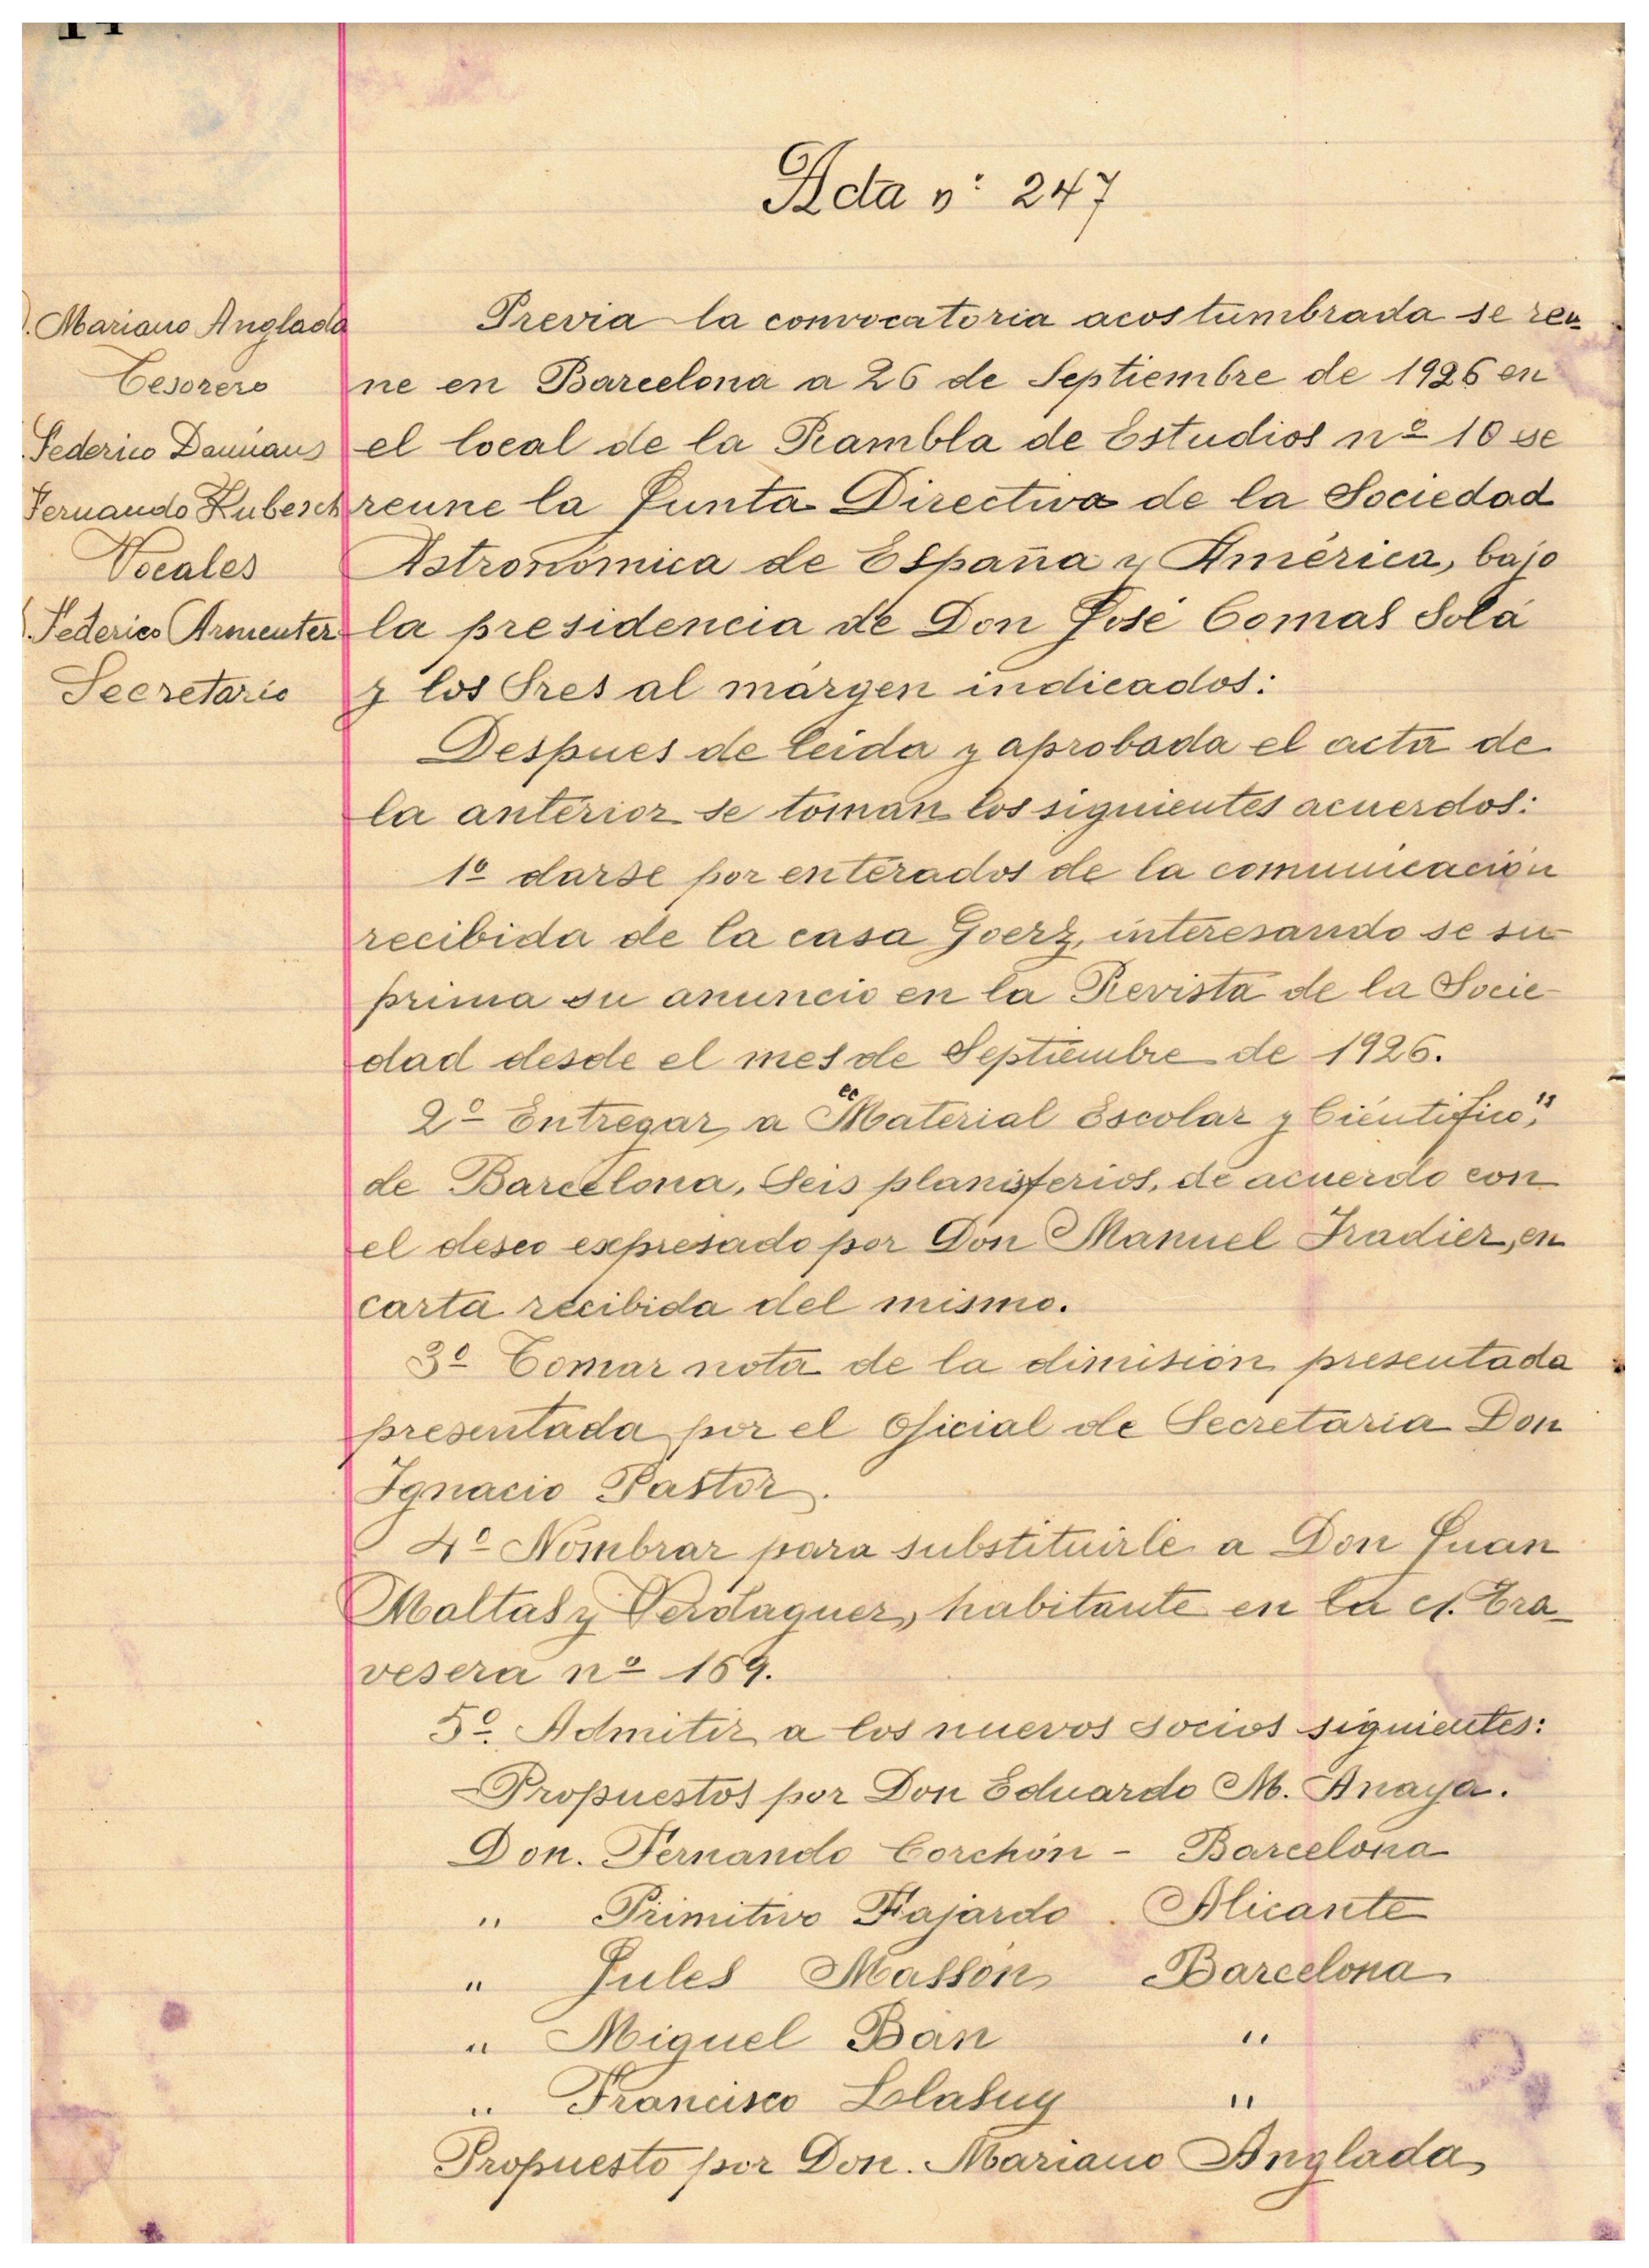 Acta nº 247
D. Mariano Anglada
Tesorero
Federico Damians
Fernando Kubesch
Vocales
Federico Armenter
Secretario
Previa la convocatoria acostumbrada se reu-
ne en Barcelona a 26 de Septiembre de 1926 en
el local de la Rambla de Estudios nº 10 se
reune la Junta Directiva de la Sociedad
Astronómica de España y América, bajo
la presidencia de Don José Comas Solá
y los Sres al márgen indicados:
Despues de leida y aprobada el acta de
la anterior se toman los siguientes acuerdos:
1º darse por enterados de la comunicación
recibida de la casa Goerz, interesando se su-
prima su anuncio en la Revista de la Socie-
dad desde el mes de Septiembre de 1926.
2º Entregar a "Material Escolar y Cientifico",
de Barcelona, Seis planisferios, de acuerdo con
el deseo expresado por Don Manuel Iradier, en
carta recibida del mismo.
3º Tomar nota de la dimisión presentada
presentada por el Oficial de Secretaria Don
Ignacio Pastor.
4º Nombrar para substituirle a Don Juan
Maltas y Verdaguer, habitante en la c/. Tra-
vesera nº 169.
5º. Admitir a los nuevos socios siguientes:
-Propuestos por Don Eduardo M. Anaya.
Don. Fernando Corchón - Barcelona
" Primitivo Fajardo . Alicante
" Jules Massón Barcelona
" Miguel Bán "
" Francisco "
Propuesto por Don. Mariano Anglada